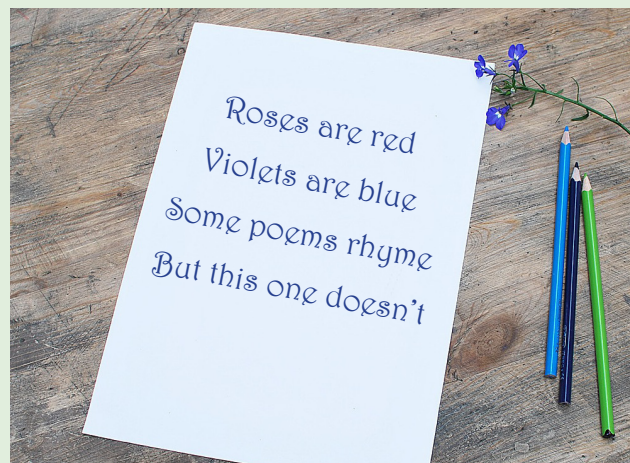 Roses are red
Violets are blue
Some poems rhyme
But this one doesn't